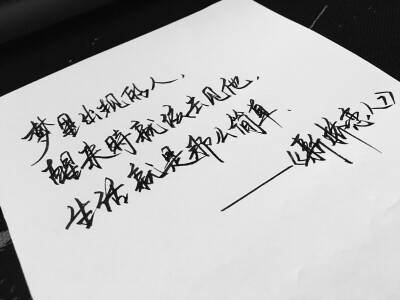 梦里出现的人,
醒来時就该去见他.
生活就是那么简单.
——《新桥恋人》